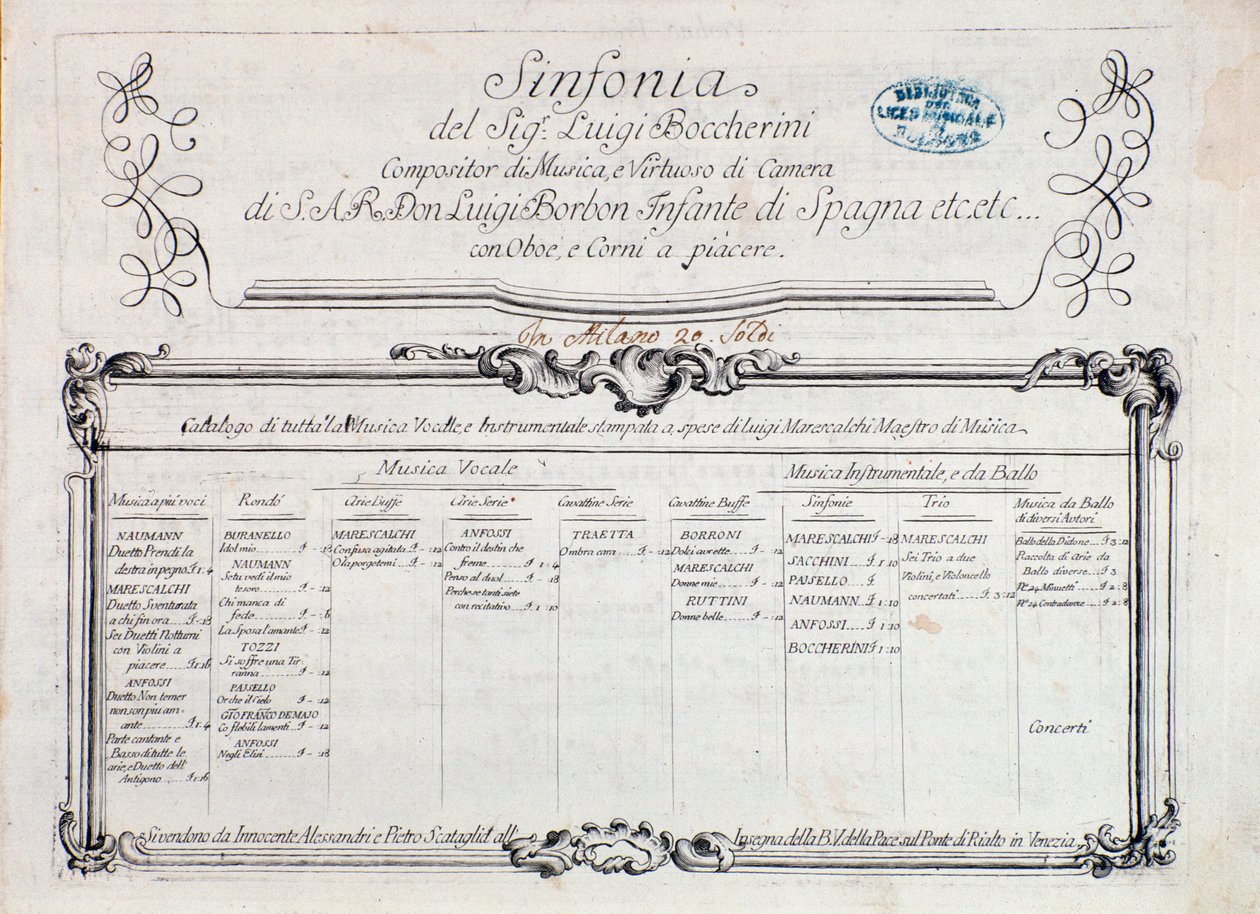 Sinfonia
del Sigr. Luigi Boccherini
Compositor di Musica, e Virtuoso di Camera
di S.A.R. Don Luigi Borbon Infante di Spagna etc. etc...
con Oboe, e Corni a piàcere.
BIBLIOTECA
DEL
LICEO MUSICALE
DI
BOLOGNA
In Milano 20. Soldi
Catalogo di tutta la Musica Vocale, e Instrumentale stampata a spese di Luigi Marescalchi Maestro di Musica
Musica Vocale
Musica Instrumentale, e da Ballo
Musica a più voci
NAUMANN
Duetto Prendi la
destra in pegno £ 1:4
MARESCALCHI
Duetto Sventurata
a chi fin ora £ -:18
Sei Duetti Notturni
con Violini a
piacere £ 1:16
ANFOSSI
Duetto Non temer
non son piu am-
ante £ 1:4
Parte cantante e
Basso di tutte le
arie, e Duetto dell'
Antigono £ 1:16
Rondó
BURANELLO
Idol mio £ -:18
NAUMANN
Se tu vedi il mio
tesoro £ -:12
Chi manca di
fede £ -:6
La Sposa l'amante £ -:12
TOZZI
Si soffre una Tir
ranna £ -:12
PAISELLO
Or che il Cielo £ -:12
GIO FRANCO DE MAJO
Co flebili lamenti £ -:12
ANFOSSI
Negli Elisi £ -:18
Arie Buffe
MARESCALCHI
Confusa agitata £ -:12
Ola porgetemi £ -:12
Arie Serie
ANFOSSI
Contro il destin che
freme £ 1:4
Penso al duol £ -:18
Perche se tanti siete
con recitativo £ 1:10
Cavattine Serie
TRAETTA
Ombra cara £ -:12
Cavattine Buffe
BORRONI
Dolci aurette £ -:12
MARESCALCHI
Donne mie £ -:12
RUTTINI
Donne belle £ -:12
Sinfonie
MARESCALCHI £ -:18
SACCHINI £ 1:10
PAISELLO £
NAUMANN £ 1:10
ANFOSSI £ 1:10
BOCCHERINI £ 1:10
Trio
MARESCALCHI
Sei Trio a due
Violini, e Violoncello
concertati £ 3:12
Musica da Ballo
di diversi Autori
Ballo della Didone £ 3:12
Raccolta di Arie da
Ballo diverse £ 3
No. 24 Minuetti £ 2:8
No. 24 Contradanze £ 2:8
Concerti
Si vendono da Innocente Alessandri e Pietro Scataglia all' Insegna della B.V. della Pace sul Ponte di Rialto in Venezia